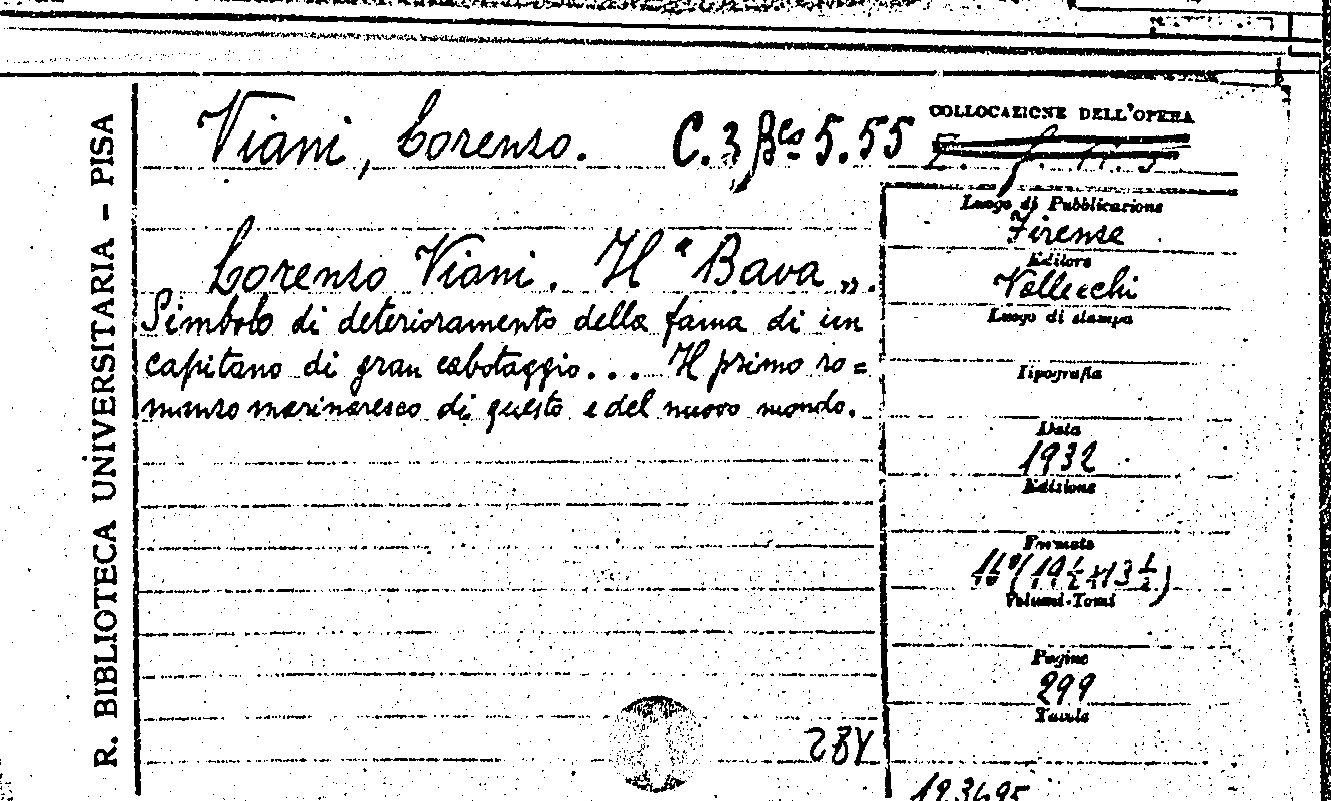 R. BIBLIOTECA UNIVERSITARIA - PISA
Viani, Lorenzo. C. 3 5.55
COLLOCAZIONE DELL'OPERA
Lorenzo Viani. Il "Bava".
Simbolo di deterioramento della fama di un
capitano di gran cabotaggio... Il primo ro=
manzo marinaresco di questo e del nuovo mondo.
Luogo di Pubblicazione
Firenze
Editore
Vallecchi
Luogo di stampa
Tipografia
Data
1932
Edizione
Formato
16° (19 1/2 x 13 1/2)
Volumi-Tomi
Pagine
299
Tavole